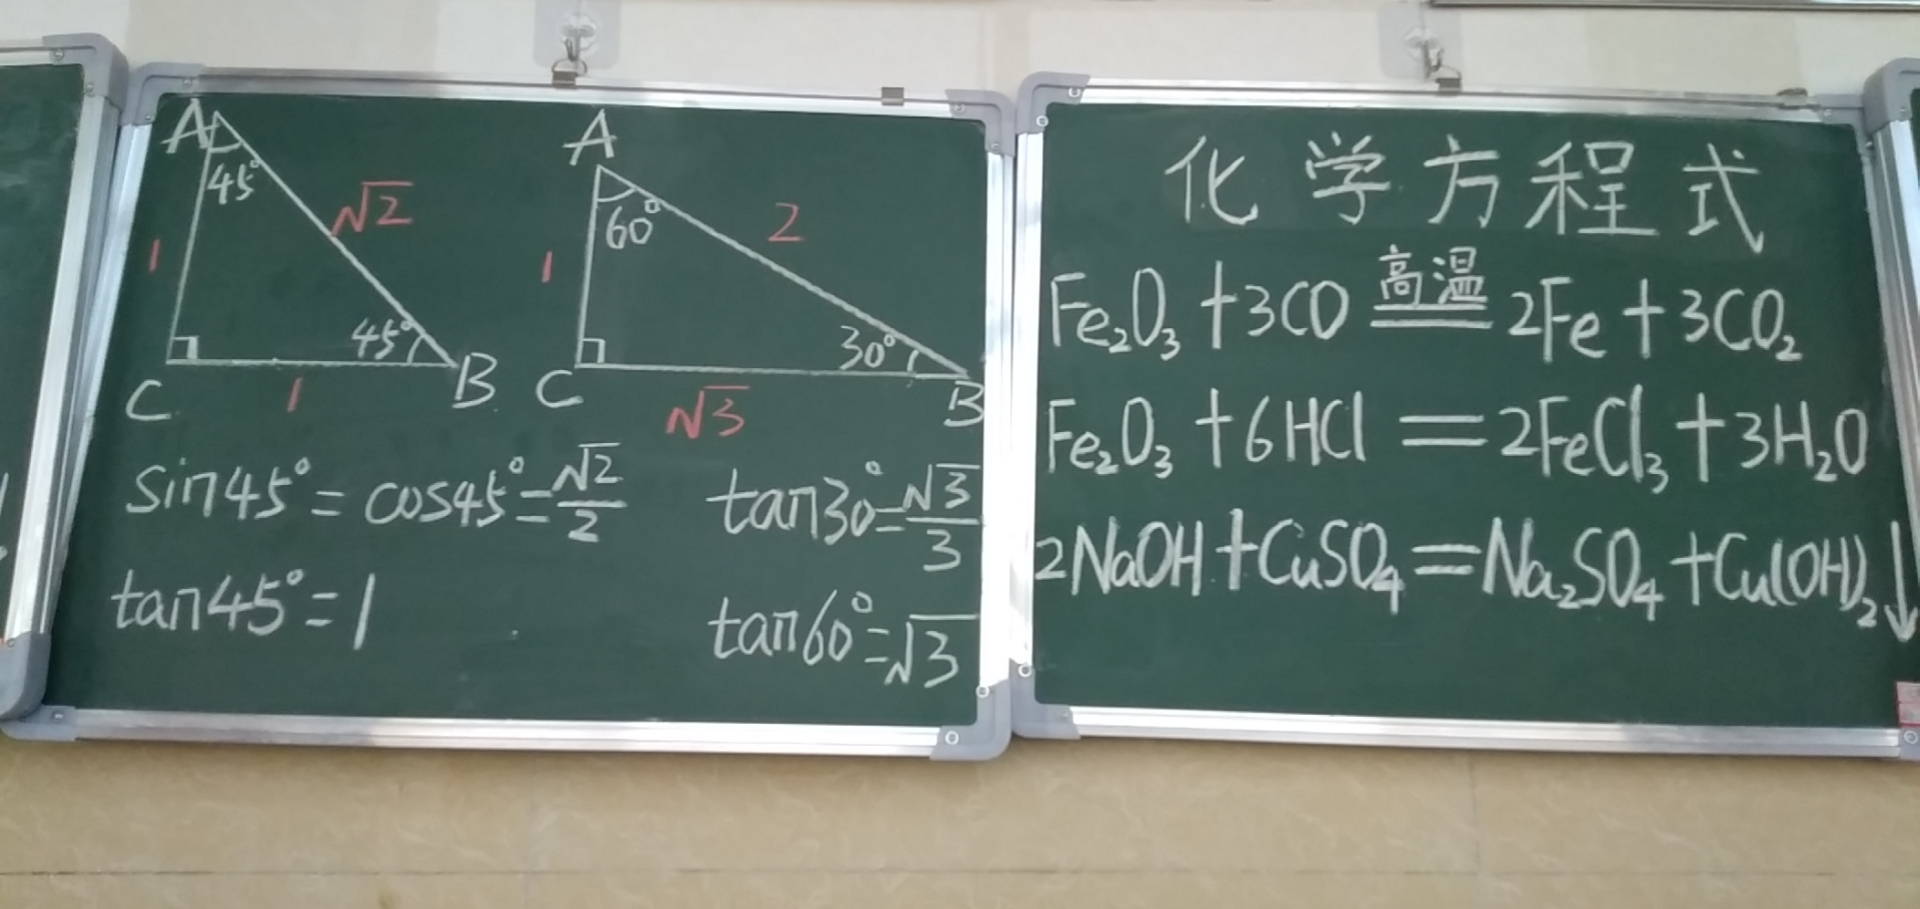 A
45°
√2
1
45°
C
1
B
A
60°
2
1
30°
C
√3
B
sin45°=cos45°=√2/2
tan45°=1
tan30°=√3/3
tan60°=√3
化学方程式
高温
Fe₂O₃+3CO=2Fe+3CO₂
Fe₂O₃+6HCl=2FeCl₃+3H₂O
2NaOH+CuSO₄=Na₂SO₄+Cu(OH)₂↓